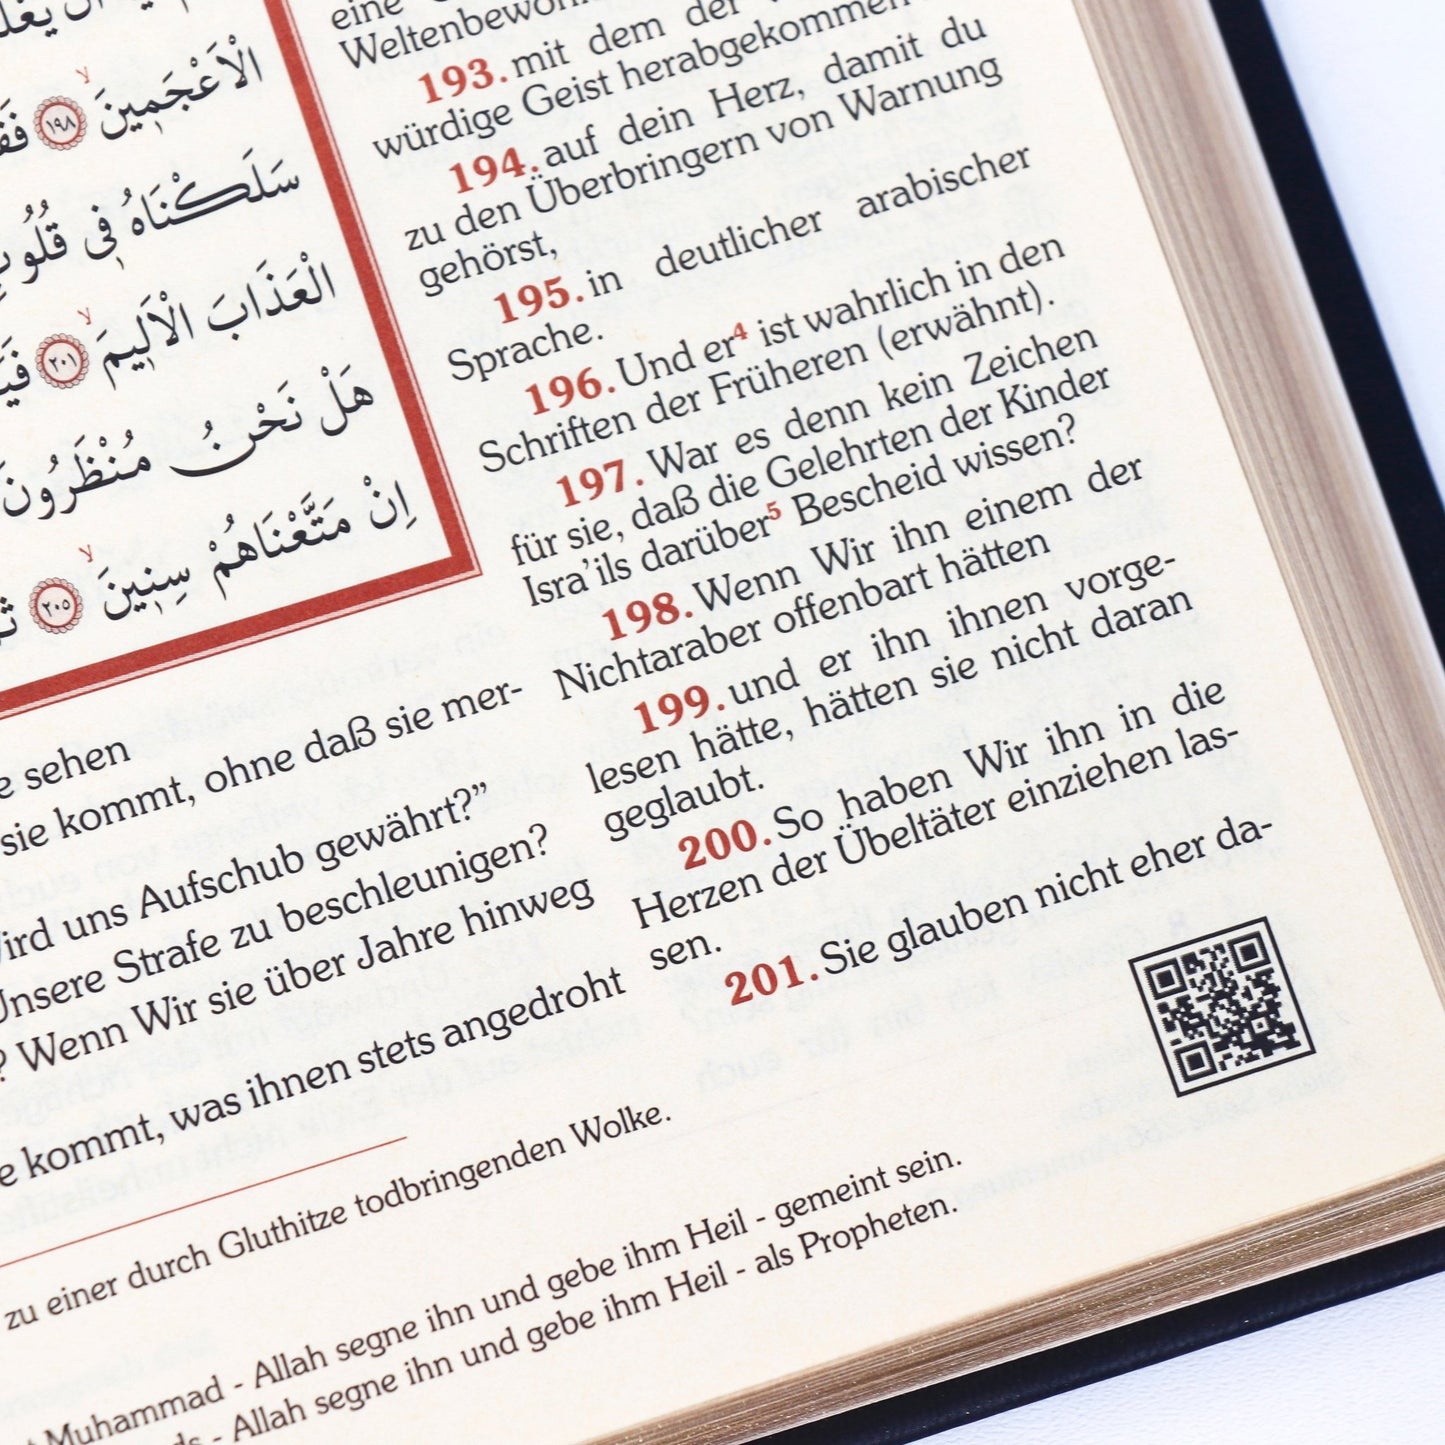 الْاَعْجَمٖينَ ١٩٨
سَلَكْنَاهُ فٖى
الْعَذَابَ الْاَلٖيمَ ٢٠١
هَلْ نَحْنُ مُنْظَرُونَ
اِنْ مَتَّعْنَاهُمْ سِنٖينَ ٢٠٥
eine
193. mit dem der
würdige Geist herabgekommen
194. auf dein Herz, damit du
zu den Überbringern von Warnung
gehörst,
195. in deutlicher arabischer
Sprache.
196. Und er⁴ ist wahrlich in den
Schriften der Früheren (erwähnt).
197. War es denn kein Zeichen
für sie, daß die Gelehrten der Kinder
Isra'ils darüber⁵ Bescheid wissen?
198. Wenn Wir ihn einem der
Nichtaraber offenbart hätten
199. und er ihn ihnen vorge-
lesen hätte, hätten sie nicht daran
geglaubt.
200. So haben Wir ihn in die
Herzen der Übeltäter einziehen las-
sen.
201. Sie glauben nicht eher da-
sehen
sie kommt, ohne daß sie mer-
uns Aufschub gewährt?”
Unsere Strafe zu beschleunigen?
? Wenn Wir sie über Jahre hinweg
kommt, was ihnen stets angedroht
zu einer durch Gluthitze todbringenden Wolke.
Muhammad - Allah segne ihn und gebe ihm Heil - gemeint sein.
- Allah segne ihn und gebe ihm Heil - als Propheten.